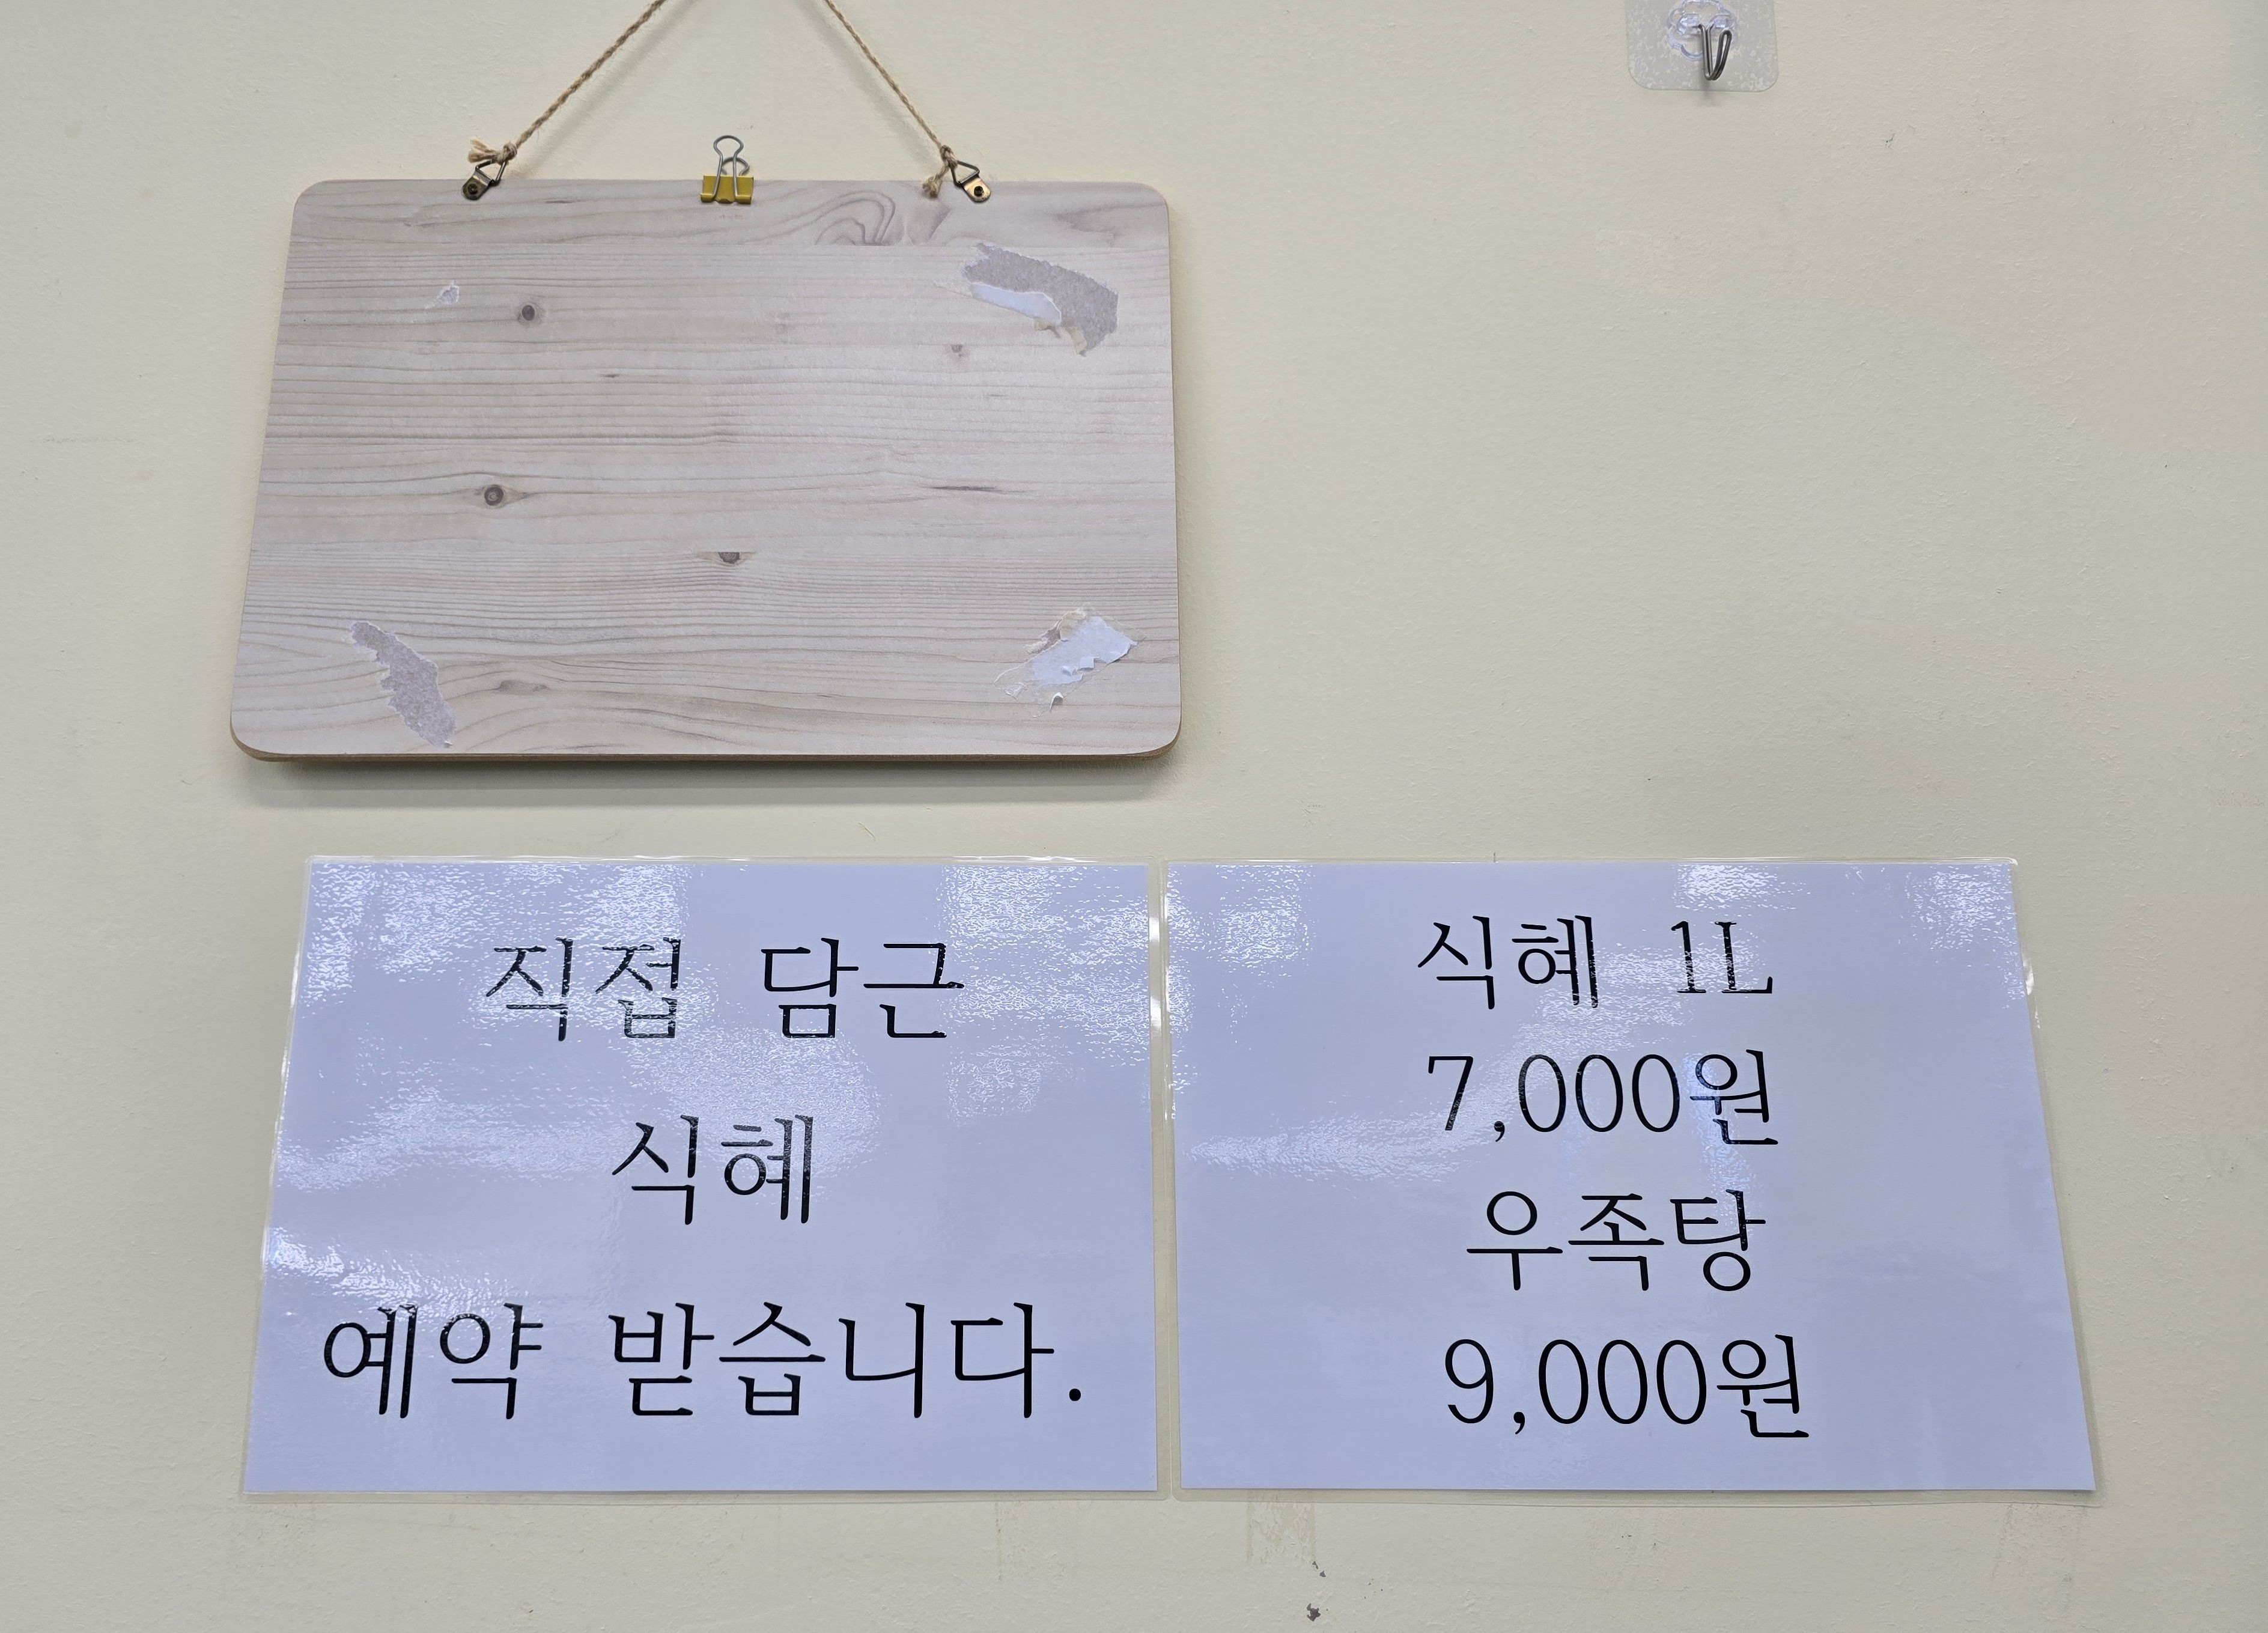 직접 담근
식혜
예약 받습니다.
식혜 1L
7,000원
우족탕
9,000원